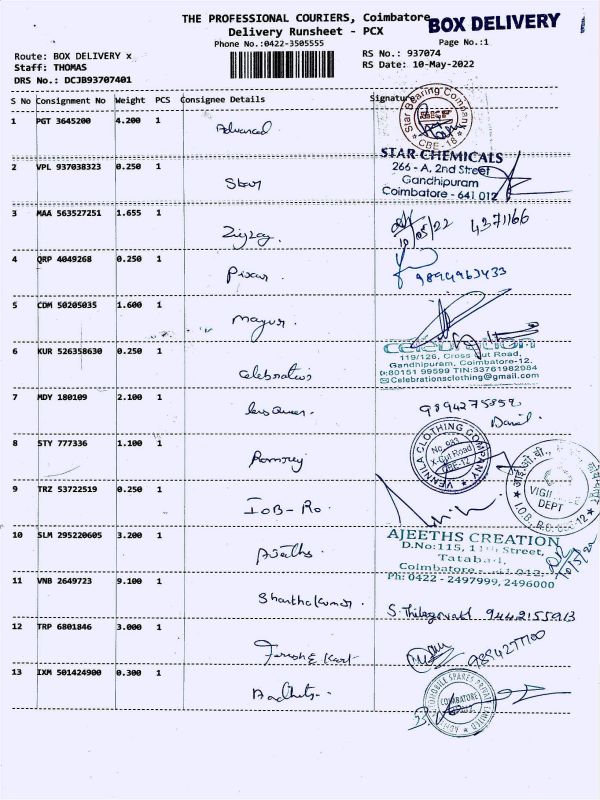 THE PROFESSIONAL COURIERS, Coimbatore
BOX DELIVERY
Delivery Runsheet - PCX
Phone No.:0422-3505555
Page No.:1
Route: BOX DELIVERY x
RS No.: 937074
Staff: THOMAS
RS Date: 10-May-2022
DRS No.: DCJB93707401
S No Consignment No Weight PCS Consignee Details Signature
1 PGT 3645200 4.200 1 Advanced
Star Bearing Company
CBE-18
STAR CHEMICALS
266 - A, 2nd Street
Gandhipuram
Coimbatore - 641 012
2 VPL 937038323 0.250 1 Star
3 MAA 563527251 1.655 1 Zigzag.
10/05/22 4371166
4 QRP 4049268 0.250 1 Pixar
9894963433
5 CDM 50205035 1.600 1 Mayur.
6 KUR 526358630 0.250 1 Celebrations
CELEBRATION
119/126, Cross Cut Road,
Gandhipuram, Coimbatore-12.
80151 99599 TIN:33761982984
Celebrationsclothing@gmail.com
7 MDY 180109 2.100 1
Daniel.
8 STY 777336 1.100 1
VENNILA CLOTHING COMPANY
X-Cut Road
CBE-12
9 TRZ 53722519 0.250 1 IOB-Ro.
DEPT
10 SLM 295220605 3.200 1 Ajeeths
AJEETHS CREATION
D.No:115, 11th Street,
Tatabad,
Ph: 0422 - 2497999, 2496000
10/5/22
11 VNB 2649723 9.100 1 Shanthakumar.
12 TRP 6801846 3.000 1
13 IXM 501424900 0.300 1
COIMBATORE